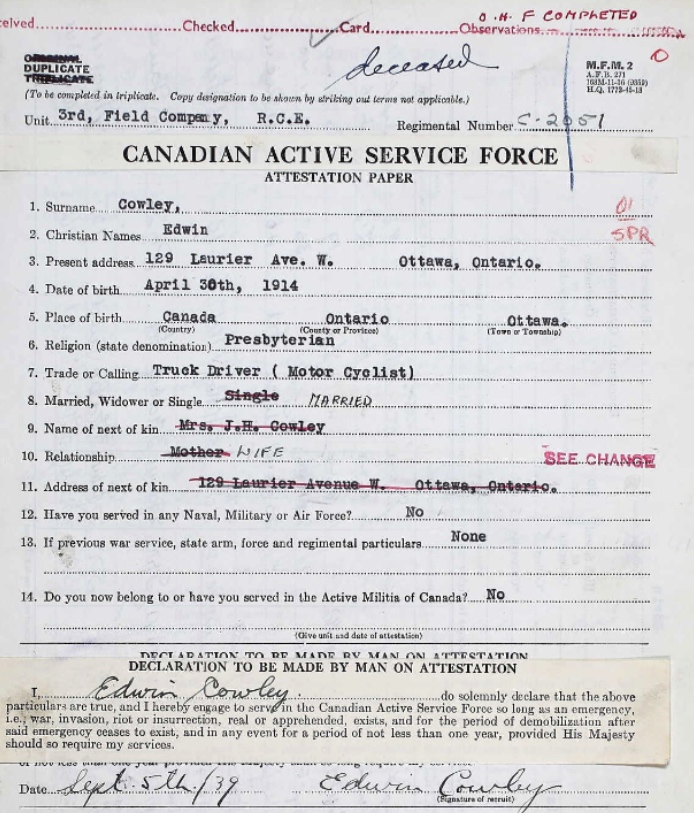 O.H.F COMPLETED
elved Checked Card Observations
ORIGINAL
DUPLICATE
TRIPLICATE
deceased
M.F.M. 2
A.F.B. 271
H.Q. 1772-45-13
(To be completed in triplicate. Copy designation to be shown by striking out terms not applicable.)
Unit 3rd, Field Company, R.C.E. Regimental Number C-2051
CANADIAN ACTIVE SERVICE FORCE
ATTESTATION PAPER
1. Surname Cowley, 01
2. Christian Names Edwin SPR
3. Present address 129 Laurier Ave. W. Ottawa, Ontario.
4. Date of birth April 30th, 1914
5. Place of birth Canada Ontario Ottawa.
(Country) (County or Province) (Town or Township)
6. Religion (state denomination) Presbyterian
7. Trade or Calling Truck Driver ( Motor Cyclist)
8. Married, Widower or Single Single MARRIED
9. Name of next of kin Mrs. J.H. Cowley
10. Relationship Mother WIFE SEE CHANGE
11. Address of next of kin 129 Laurier Avenue W. Ottawa, Ontario.
12. Have you served in any Naval, Military or Air Force? No
13. If previous war service, state arm, force and regimental particulars None
14. Do you now belong to or have you served in the Active Militia of Canada? No
(Give unit and date of attestation)
DECLARATION TO BE MADE BY MAN ON ATTESTATION
DECLARATION TO BE MADE BY MAN ON ATTESTATION
I, Edwin Cowley do solemnly declare that the above
particulars are true, and I hereby engage to serve in the Canadian Active Service Force so long as an emergency,
i.e., war, invasion, riot or insurrection, real or apprehended, exists, and for the period of demobilization after
said emergency ceases to exist, and in any event for a period of not less than one year, provided His Majesty
should so require my services.
Date Sept. 5th/39 Edwin Cowley
(Signature of recruit)